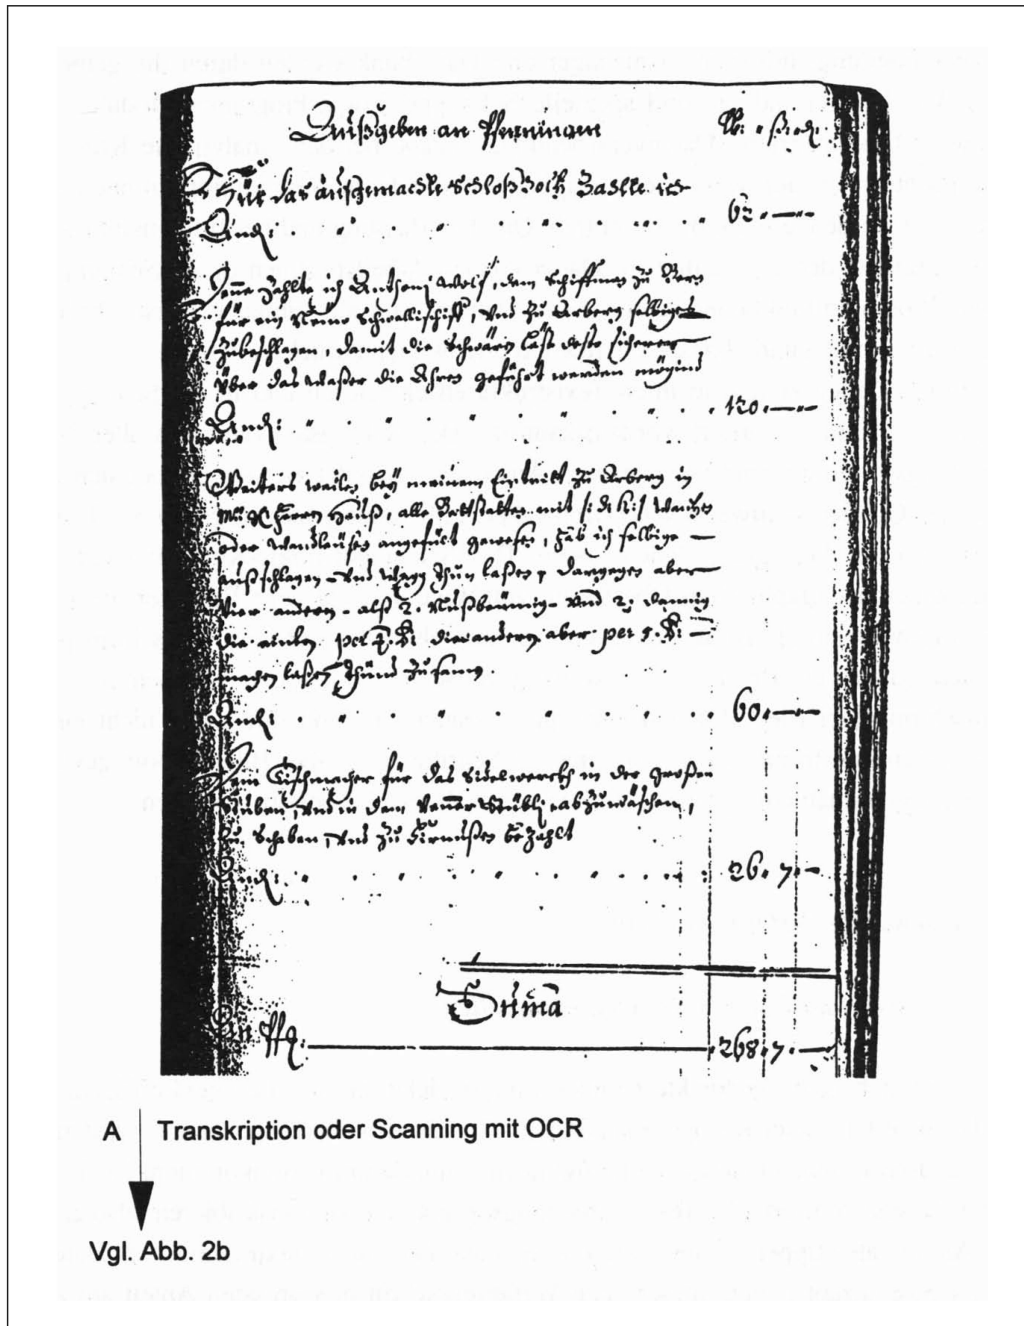 Außgeben an Pfenningen
Für das außgemachte Schloß Holtz Zahlte ich
And: 62.—
Denne Zahlte ich Anthoni Wolf, dem Schiffman zu
für ein Schiff, und zu Arberg selbiges
Zubeschlagen, damit die Schwäry Last desto sicherer
über das Waßer die Ahren geführt werden mögind
And: 120.—
Weiters weilen bey meinem Eintritt zu Arberg in
Mrgh Herren Hauß, alle Bettstatten mit
oder Wandleüßen angefült gewesen, hab ich selbige
außschlagen und Wegg Thun laßen, dargegen aber
Vier andere alß 2. Nußbeümig und 2. dannig
die einten per ₰: die anderen aber per 5.
machen laßen, Thund Zusamen
And: 60.—
Dem Tischmacher für das Sidelwerckh in der großen
Stuben, und in dem Venner Stübli abzuwäschen,
Zu Schaben, und zu Firnußen bezahlt
And: 26. 7.—
Suma
An Pfg. 268. 7.—
A Transkription oder Scanning mit OCR
Vgl. Abb. 2b